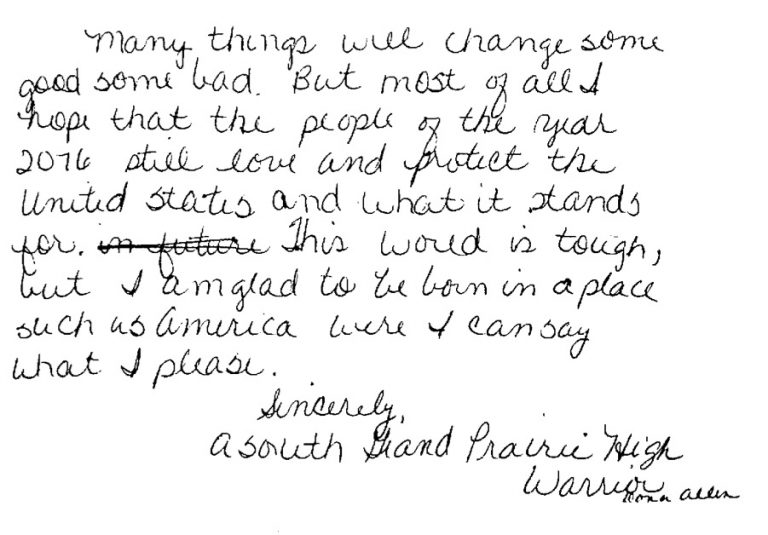 Many things will change some
good some bad. But most of all I
hope that the people of the year
2076 still love and protect the
United States and what it stands
for. in future This world is tough,
but I am glad to be born in a place
such as America were I can say
what I please.
Sincerely,
a South Grand Prairie High
Warrior
Dona Allen